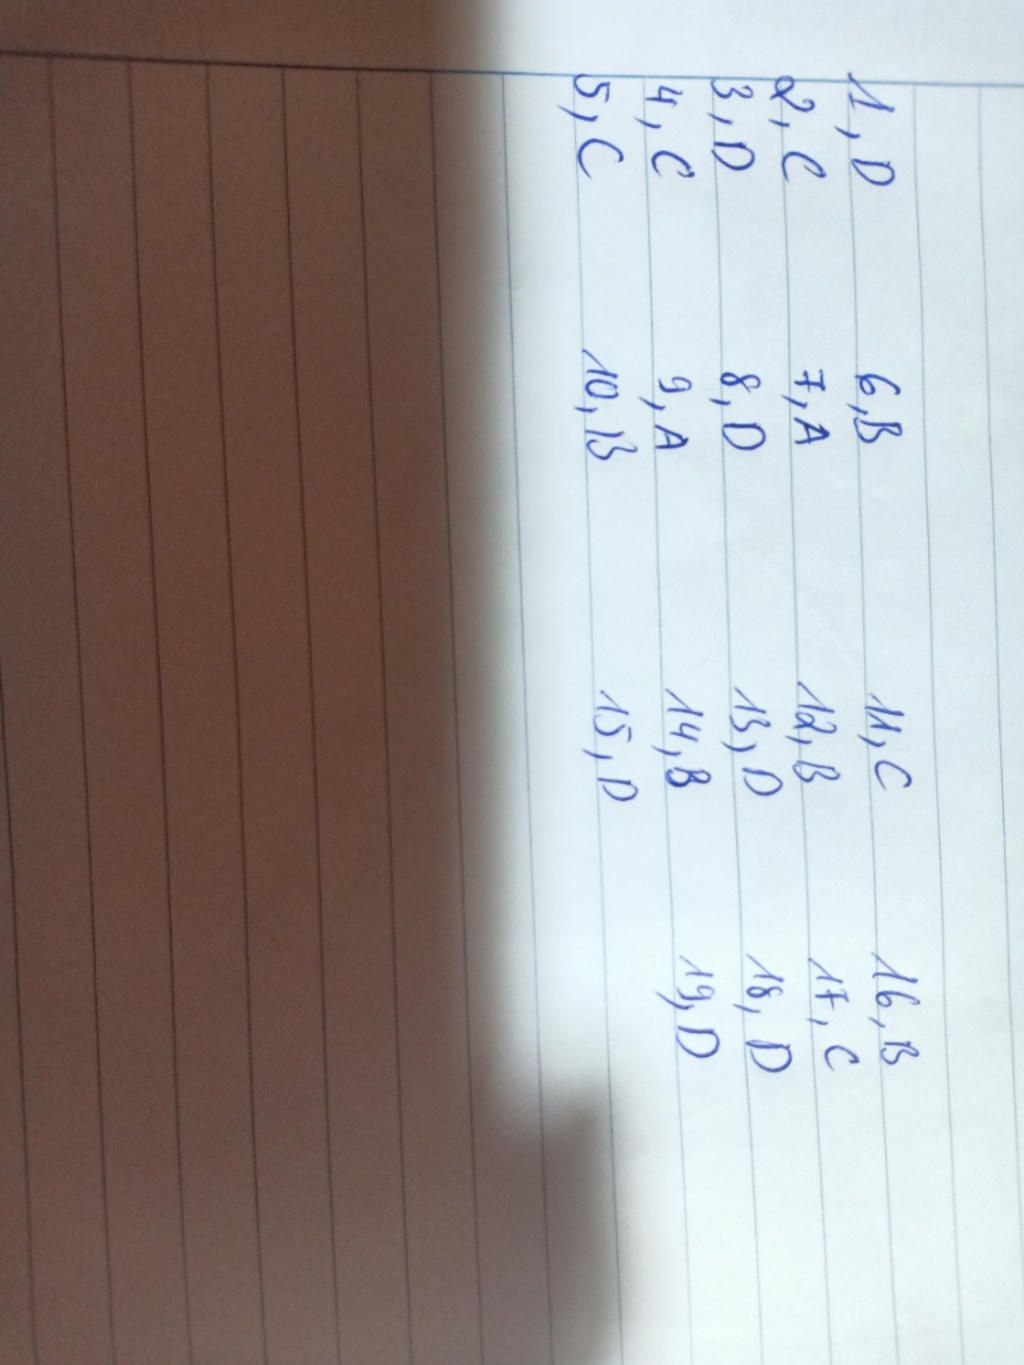 1, D 6, B 11, C 16, B
2, C 7, A 12, B 17, C
3, D 8, D 13, D 18, D
4, C 9, A 14, B 19, D
5, C 10, B 15, D